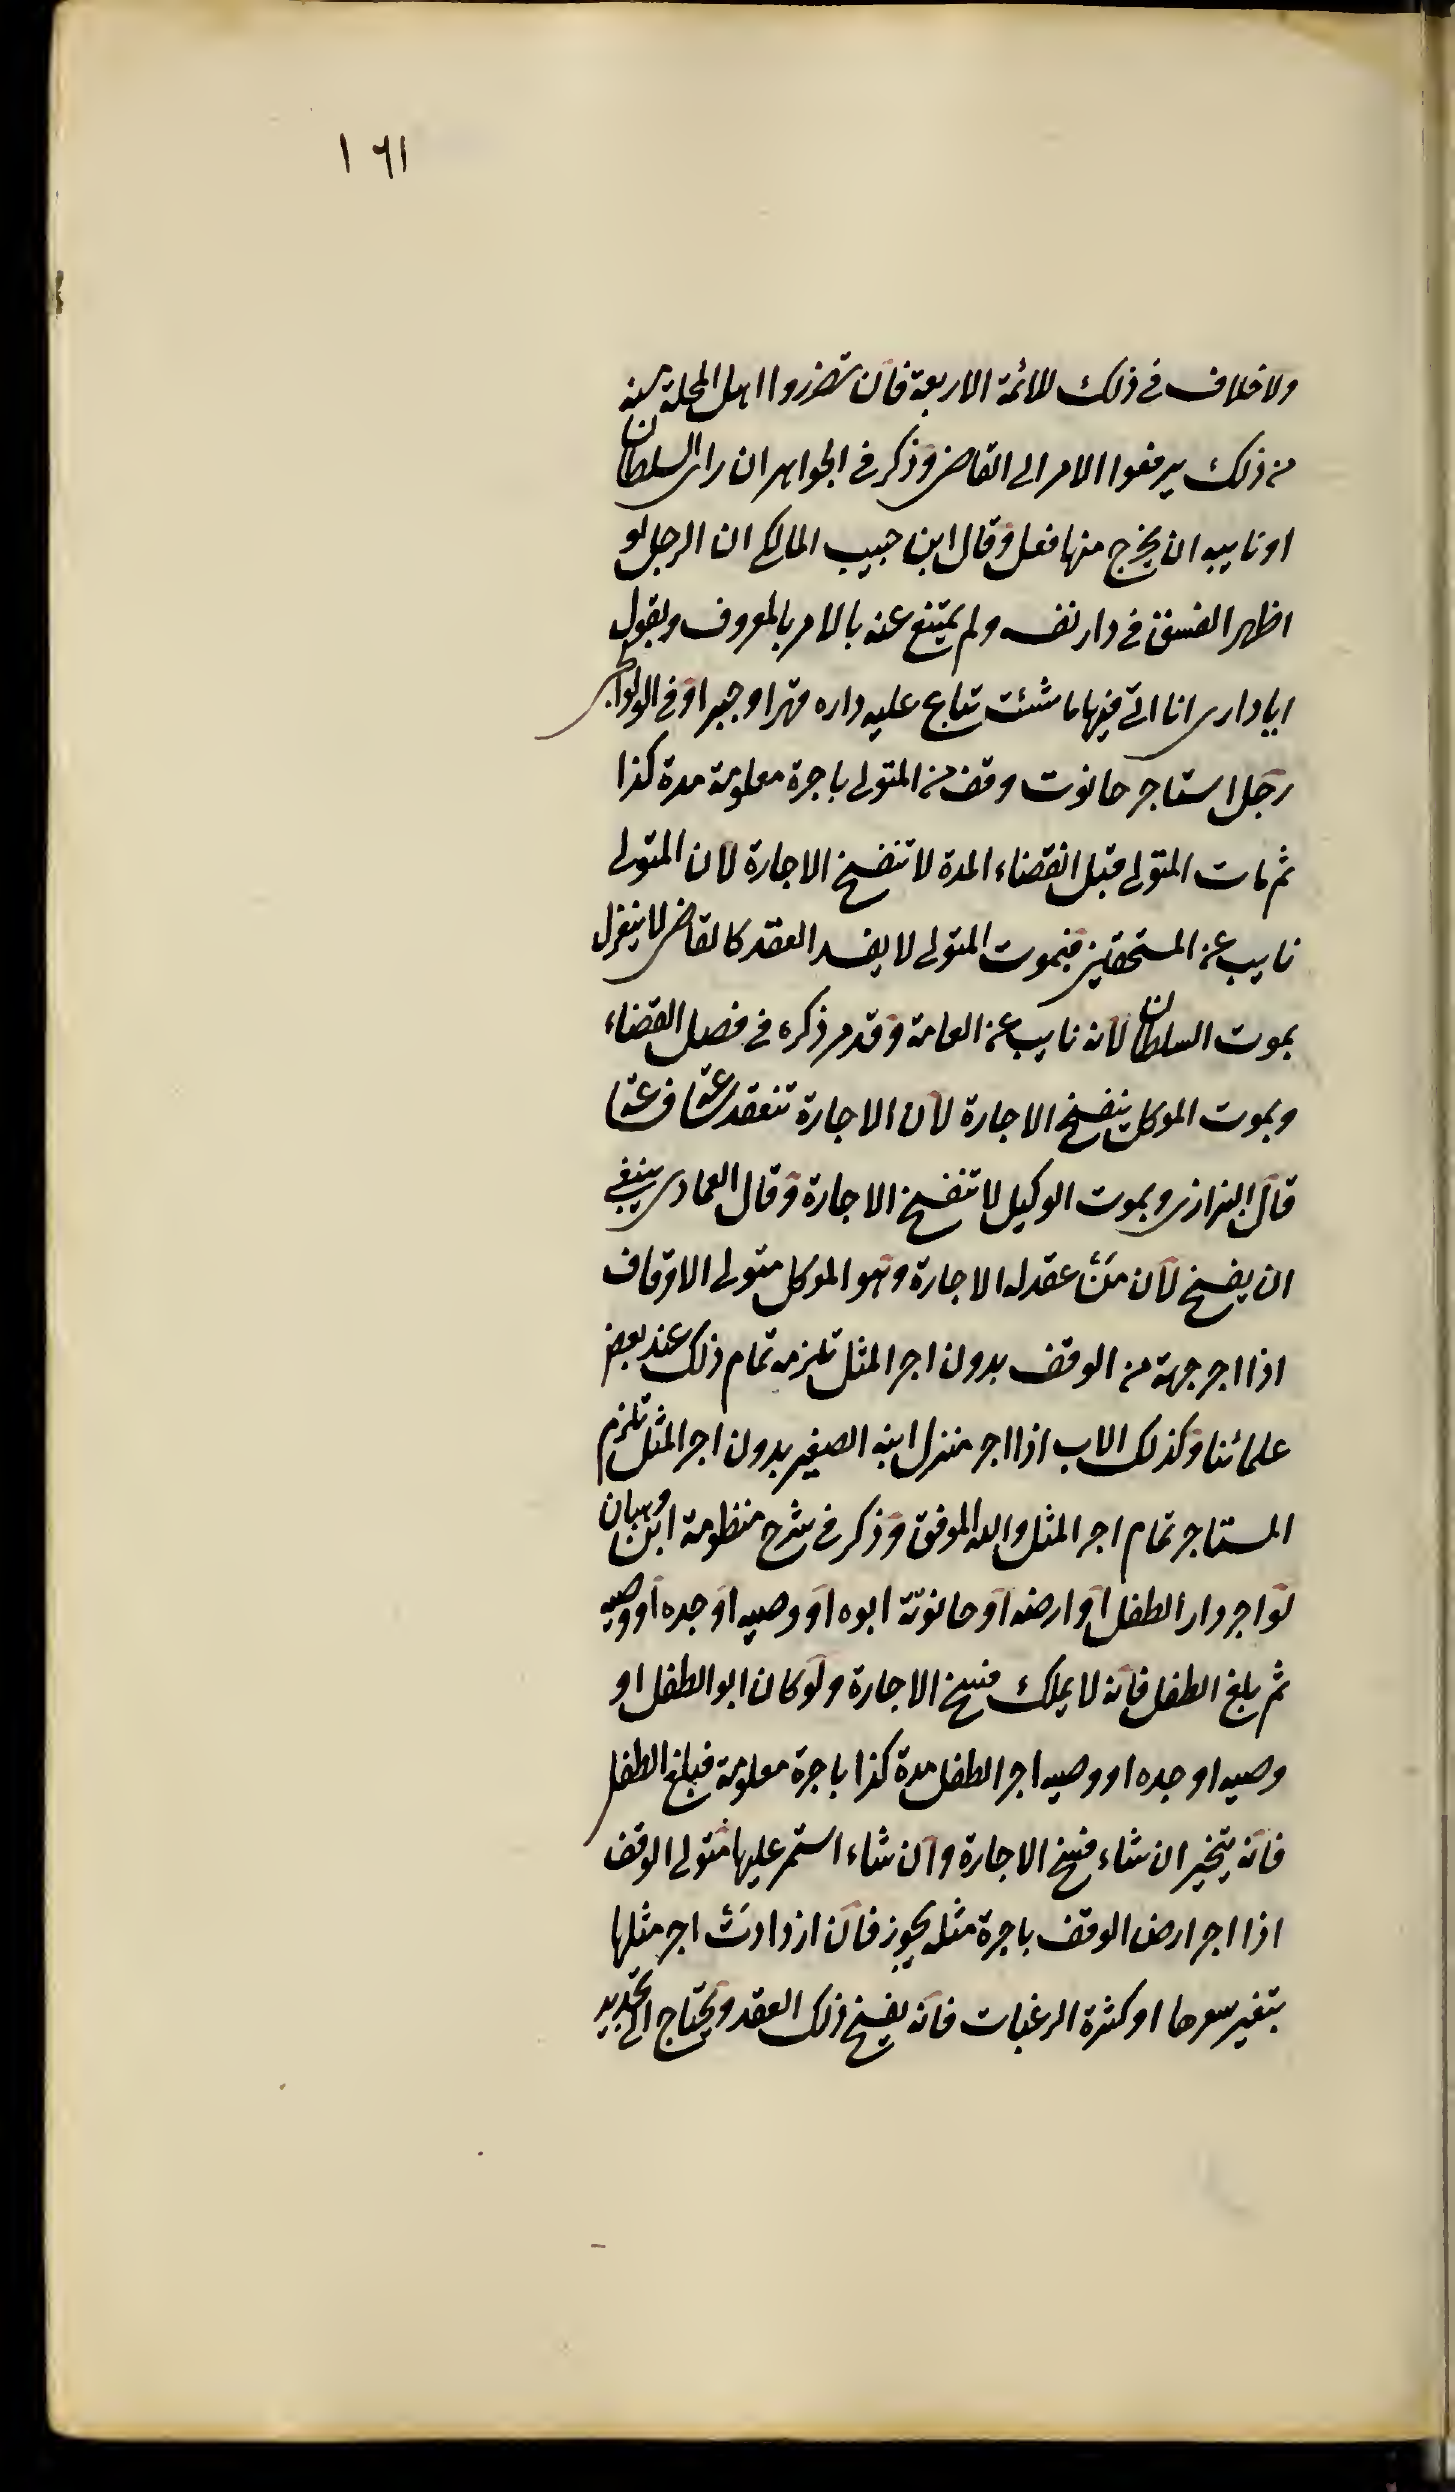 ١٦١
ولا خلاف فى ذلك للائمة الاربعة فان تضرروا اهل المحلة منه
من ذلك يرفعوا الامر الى القاضى وذكر فى الجواهر ان راى السلطان
او نايبه ان يخرج منها فعل وقال ابن حبيب المالكى ان الرجل لو
اظهر الفسق فى دار نفسه ولم يمتنع عنه بالامر بالمعروف ويقول
ايا دارى انا اتى فيها ما شئت تباع عليه داره قهرا وجبرا وفى الولوالجى
رجل استاجر حانوت وقف من المتولى باجرة معلومة مدة كذا
ثم مات المتولى قبل انقضاء المدة لا تنفسخ الاجارة لان المتولى
نايب عن المستحقين فبموت المتولى لا يفسد العقد كالقاضى لا ينعزل
بموت السلطان لانه نايب عن العامة وقد مر ذكره فى فصل القضاء
وبموت الموكل ينفسخ الاجارة لان الاجارة تنعقد ساعة فساعة
قال البزازى وبموت الوكيل لا تنفسخ الاجارة وقال العمادى ينبغى
ان يفسخ لان من عقد له الاجارة وهو الموكل متولى الاوقاف
اذا اجر جهة من الوقف بدون اجر المثل تلزمه تمام ذلك عند بعض
علمائنا وكذلك الاب اذا اجر منزل ابنه الصغير بدون اجر المثل تلزم
المستاجر تمام اجر المثل والله الموفق وذكر فى شرح منظومة ابن وهبان
لو اجر دار الطفل او ارضه او حانوته ابوه او وصيه او جده او وصيه
ثم بلغ الطفل فانه لا يملك فسخ الاجارة ولو كان ابو الطفل او
وصيه او جده او وصيه اجر الطفل مدة كذا باجرة معلومة فبلغ الطفل
فانه يتخير ان شاء فسخ الاجارة وان شاء استمر عليها متولى الوقف
اذا اجر ارض الوقف باجرة مثله يجوز فان ازدادت اجر مثلها
بتغير سعرها او كثرة الرغبات فانه يفسخ ذلك العقد ويحتاج الى تجديد